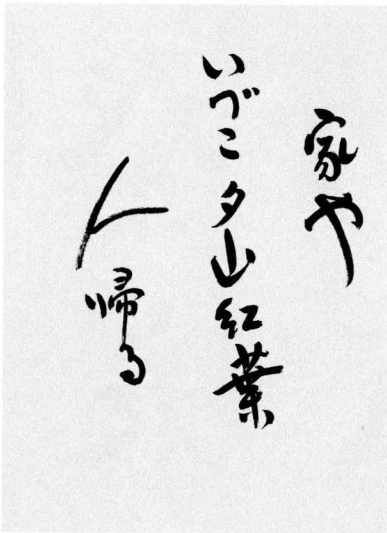 家や
いづこ夕山紅葉
人帰る